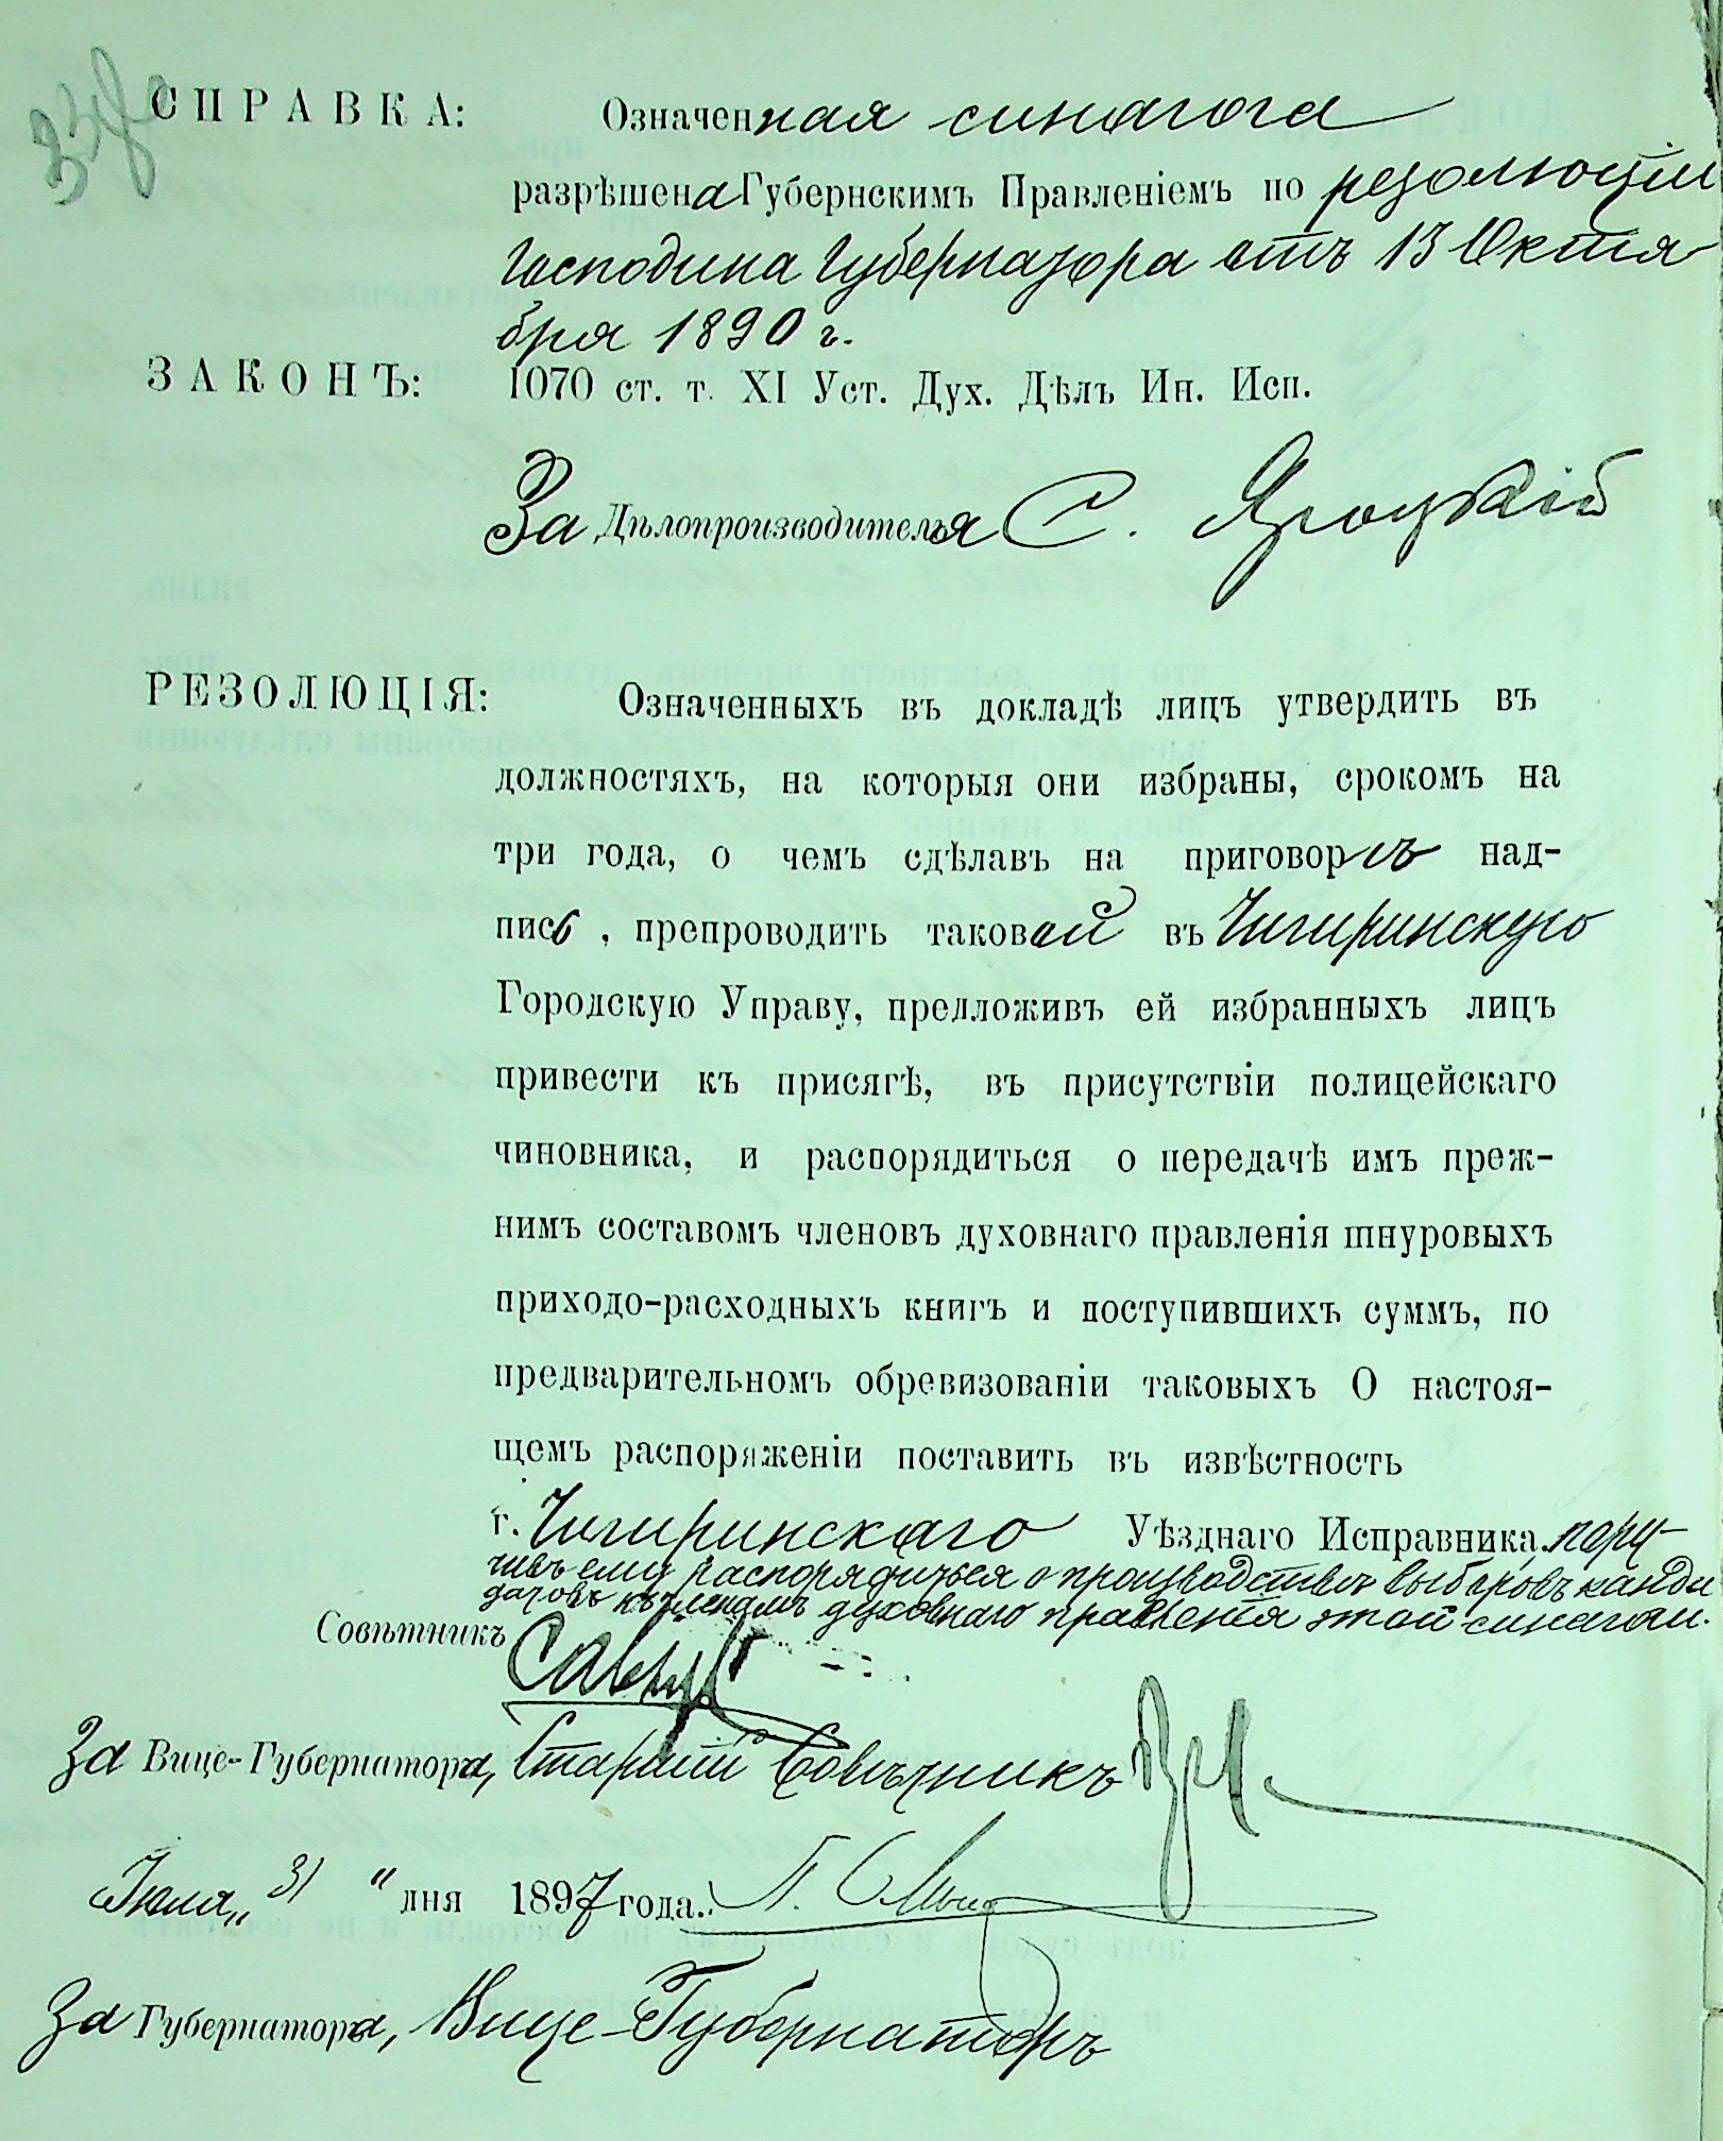 СПРАВКА: Означенная синагога
разрѣшена Губернскимъ Правленіемъ по резолюціи
Господина Губернатора отъ 13 Октя
бря 1890 г.
ЗАКОНЪ: 1070 ст. т. XI Уст. Дух. Дѣлъ Ин. Исп.
За Дѣлопроизводителя С. Яроцкій
РЕЗОЛЮЦІЯ: Означенныхъ въ докладѣ лицъ утвердить въ
должностяхъ, на которыя они избраны, срокомъ на
три года, о чемъ сдѣлавъ на приговорѣ над-
пись, препроводить таковой въ Чигиринскую
Городскую Управу, предложивъ ей избранныхъ лицъ
привести къ присягѣ, въ присутствіи полицейскаго
чиновника, и распорядиться о передачѣ имъ преж-
нимъ составомъ членовъ духовнаго правленія шнуровыхъ
приходо-расходныхъ книгъ и поступившихъ суммъ, по
предварительномъ обревизованіи таковыхъ О настоя-
щемъ распоряженіи поставить въ извѣстность
г. Чигиринскаго Уѣзднаго Исправника, пору-
чивъ ему распорядиться о производствѣ выборовъ канди
датовъ къ членамъ духовнаго правленія этой синагоги.
Совѣтникъ
За Вице-Губернатора, Старшій Совѣтникъ
Іюля „31" дня 1897 года.
За Губернатора, Вице-Губернаторъ